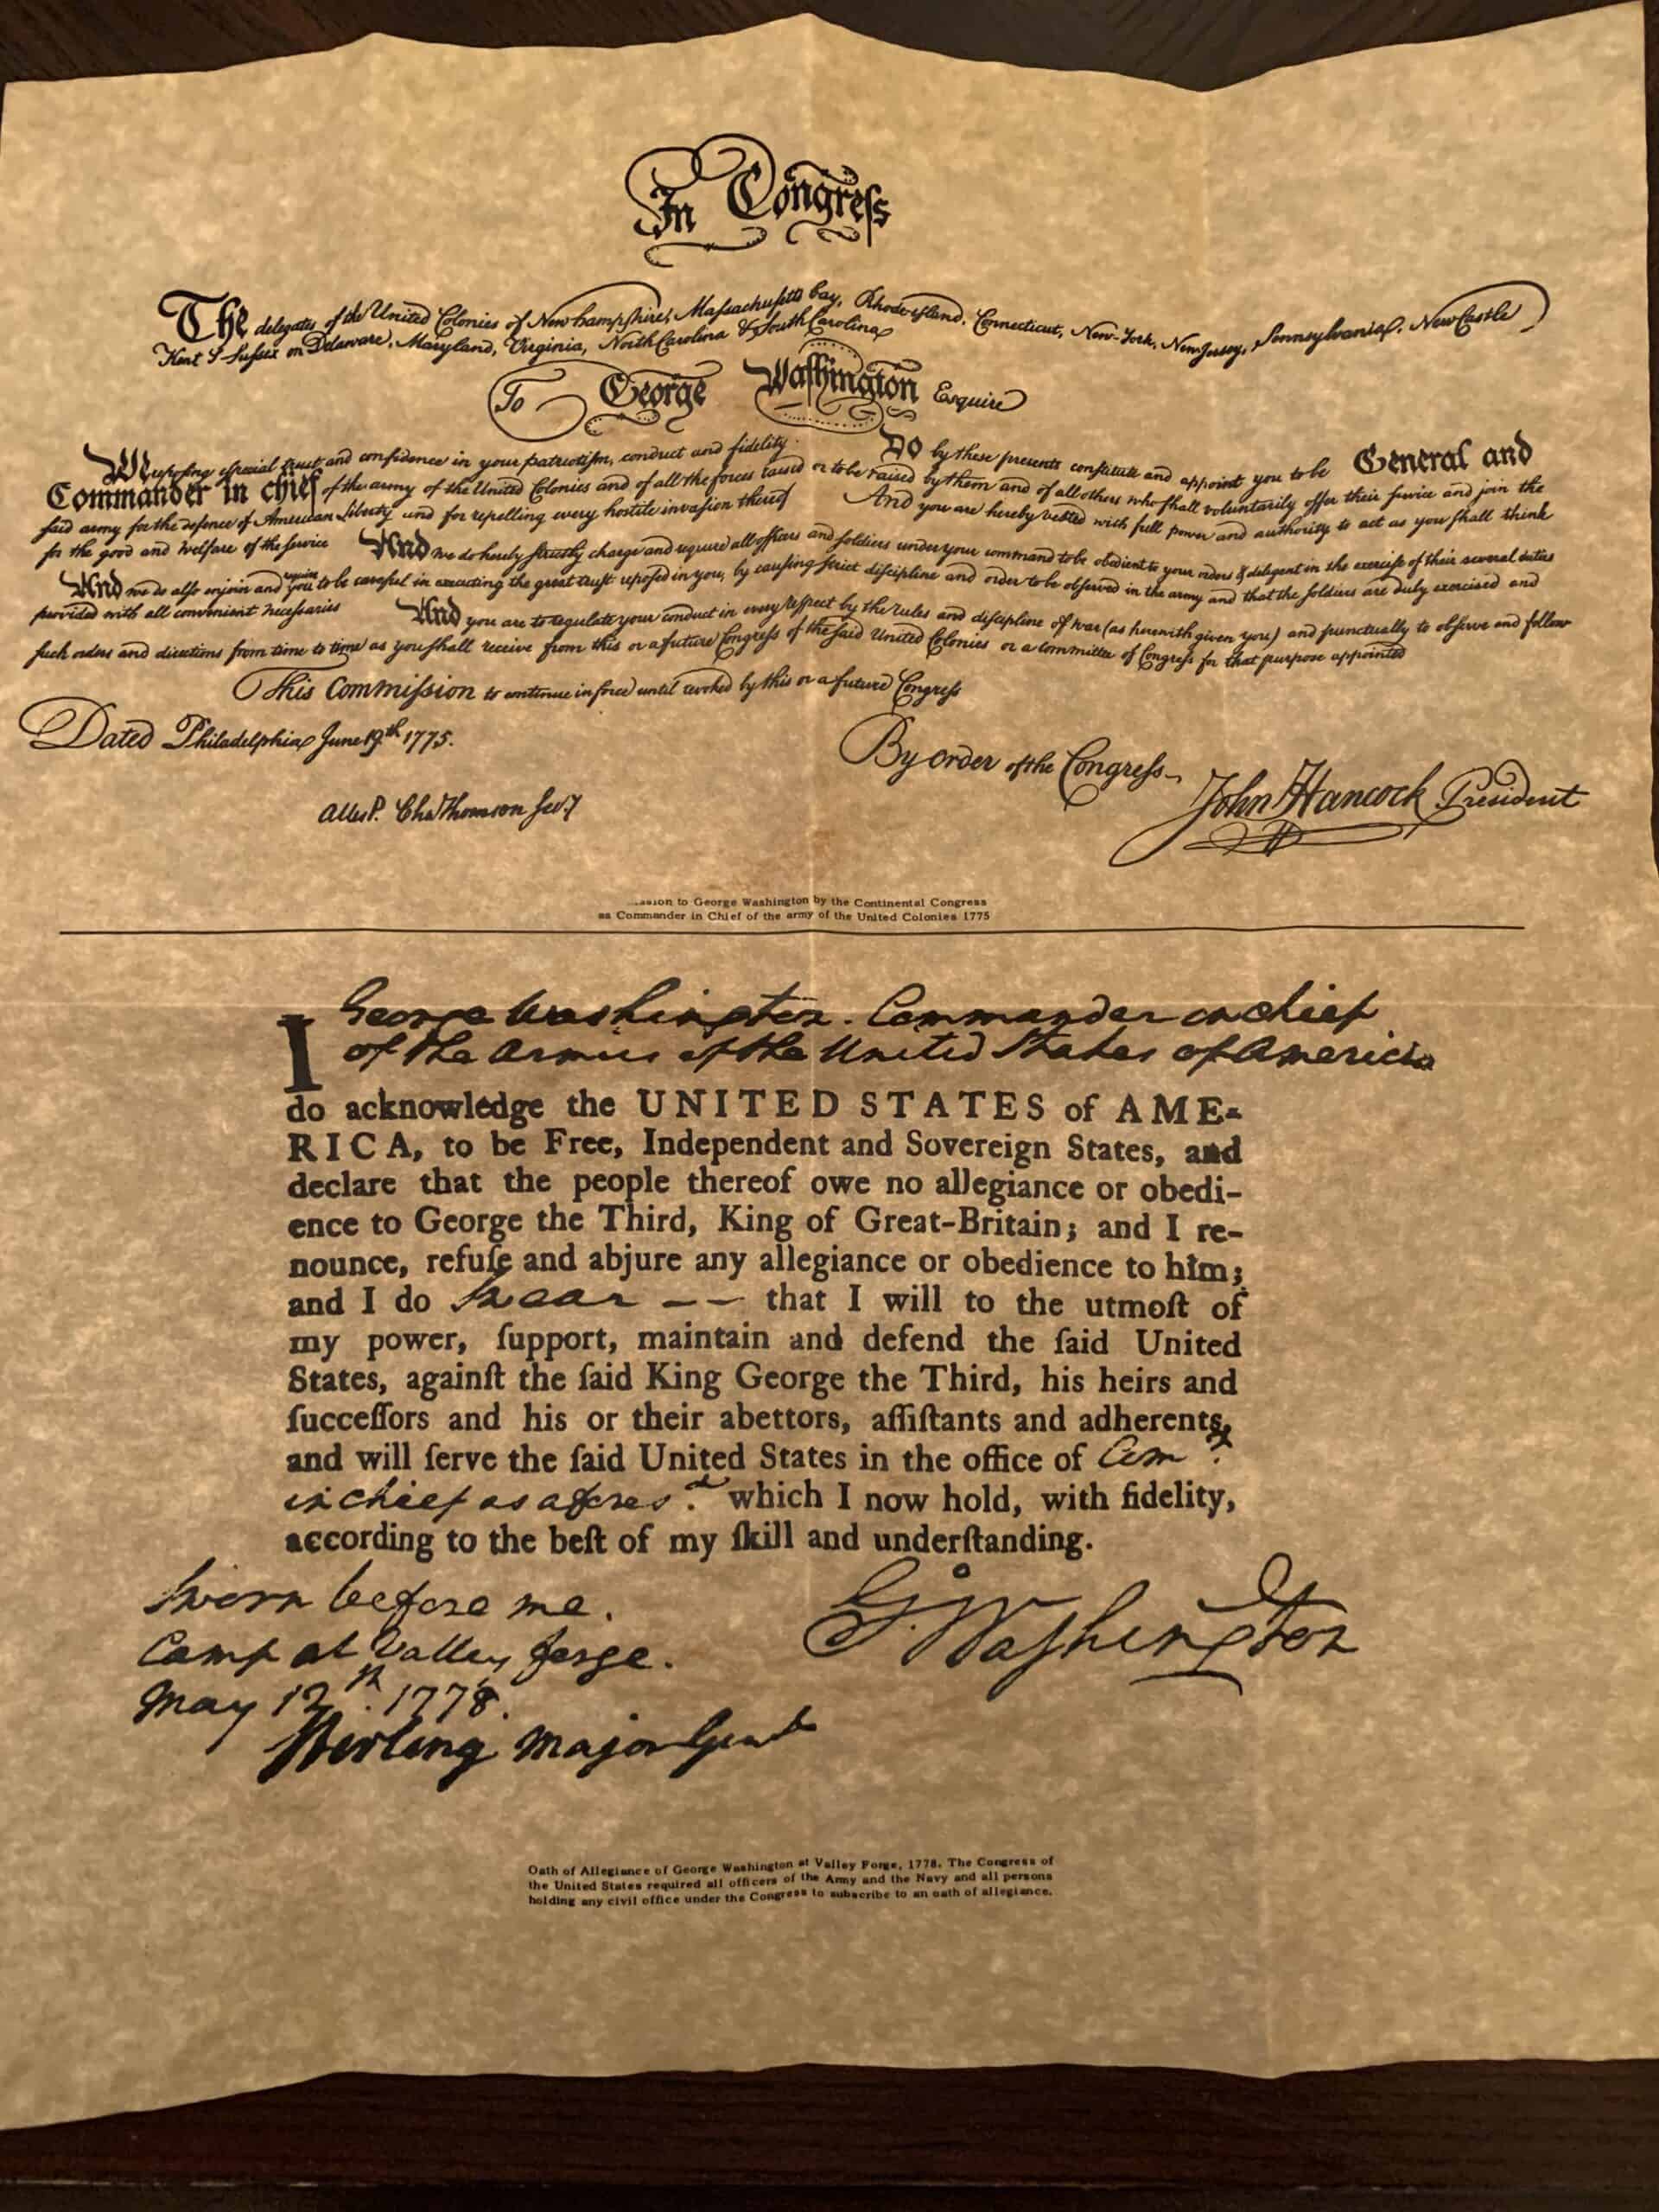 In Congreſs
The delegates of the United Colonies of New hampſhire, Maſsachuſetts bay, Rhode-iſland, Connecticut, New-York, New Jersey, Pennsylvania, New Castle
Kent & Suſsex on Delaware, Maryland, Virginia, North Carolina & South Carolina
To George Waſhington Esquire
We repoſing eſpecial truſt and confidence in your patriotiſm, conduct and fidelity Do by theſe preſents conſtitute and appoint you to be General and
Commander in chief of the army of the United Colonies and of all the forces raised or to be raised by them and of all others who ſhall voluntarily offer their ſervice and join the
ſaid army for the defence of American Liberty and for repelling every hostile invaſion thereof And you are hereby vested with full power and authority to act as you ſhall think
for the good and welfare of the ſervice And we do hereby ſtrictly charge and require all officers and ſoldiers under your command to be obedient to your orders & diligent in the exerciſe of their several duties
And we do alſo enjoin and require you to be careful in executing the great truſt repoſed in you, by cauſing ſtrict diſcipline and order to be obſerved in the army and that the ſoldiers are duly exercised and
provided with all convenient neceſſaries And you are to regulate your conduct in every reſpect by the rules and diſcipline of war (as herewith given you) and punctually to obſerve and follow
ſuch orders and directions from time to time as you ſhall receive from this or a future Congreſs of the ſaid United Colonies or a committee of Congreſs for that purpose appointed
This Commiſsion to continue in force until revoked by this or a future Congreſs
Dated Philadelphia June 19th 1775.
By order of the Congreſs
John Hancock President
Attest. Cha Thomson Secy
to George Washington by the Continental Congress
as Commander in Chief of the army of the United Colonies 1775
I George Washington. Commander in chief
of the Armies of the United States of America
do acknowledge the UNITED STATES of AME-
RICA, to be Free, Independent and Sovereign States, and
declare that the people thereof owe no allegiance or obedi-
ence to George the Third, King of Great-Britain; and I re-
nounce, refuſe and abjure any allegiance or obedience to him;
and I do Swear — — that I will to the utmoſt of
my power, ſupport, maintain and defend the ſaid United
States, againſt the ſaid King George the Third, his heirs and
ſucceſſors and his or their abettors, aſſiſtants and adherents,
and will ſerve the ſaid United States in the office of Com.r
in chief as afores.d which I now hold, with fidelity,
according to the beſt of my ſkill and underſtanding.
Sworn before me.
Camp at Valley forge.
May 12th. 1778.
Stirling Major Genl
Go. Waſhington
Oath of Allegiance of George Washington at Valley Forge, 1778. The Congress of
the United States required all officers of the Army and the Navy and all persons
holding any civil office under the Congress to subscribe to an oath of allegiance.